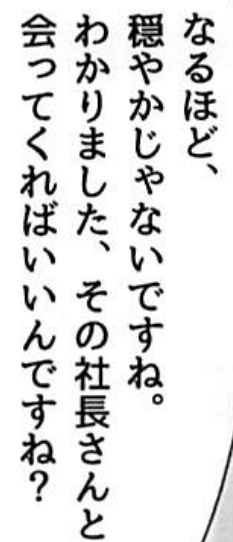 なるほど、
穏やかじゃないですね。
わかりました、その社長さんと
会ってくればいいんですね？